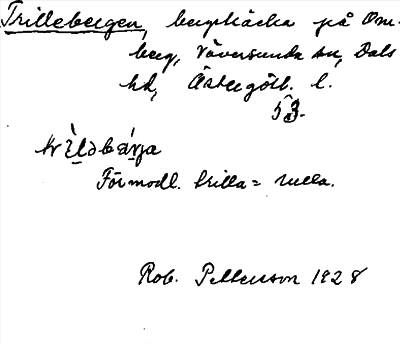 Trillebergen, bergbacka på Om-
berg, Väversunda sn, Dals
hd, Östergötl. l.
53.
trìləbárja
Förmodl. trilla = rulla.
Rob. Pettersson 1928